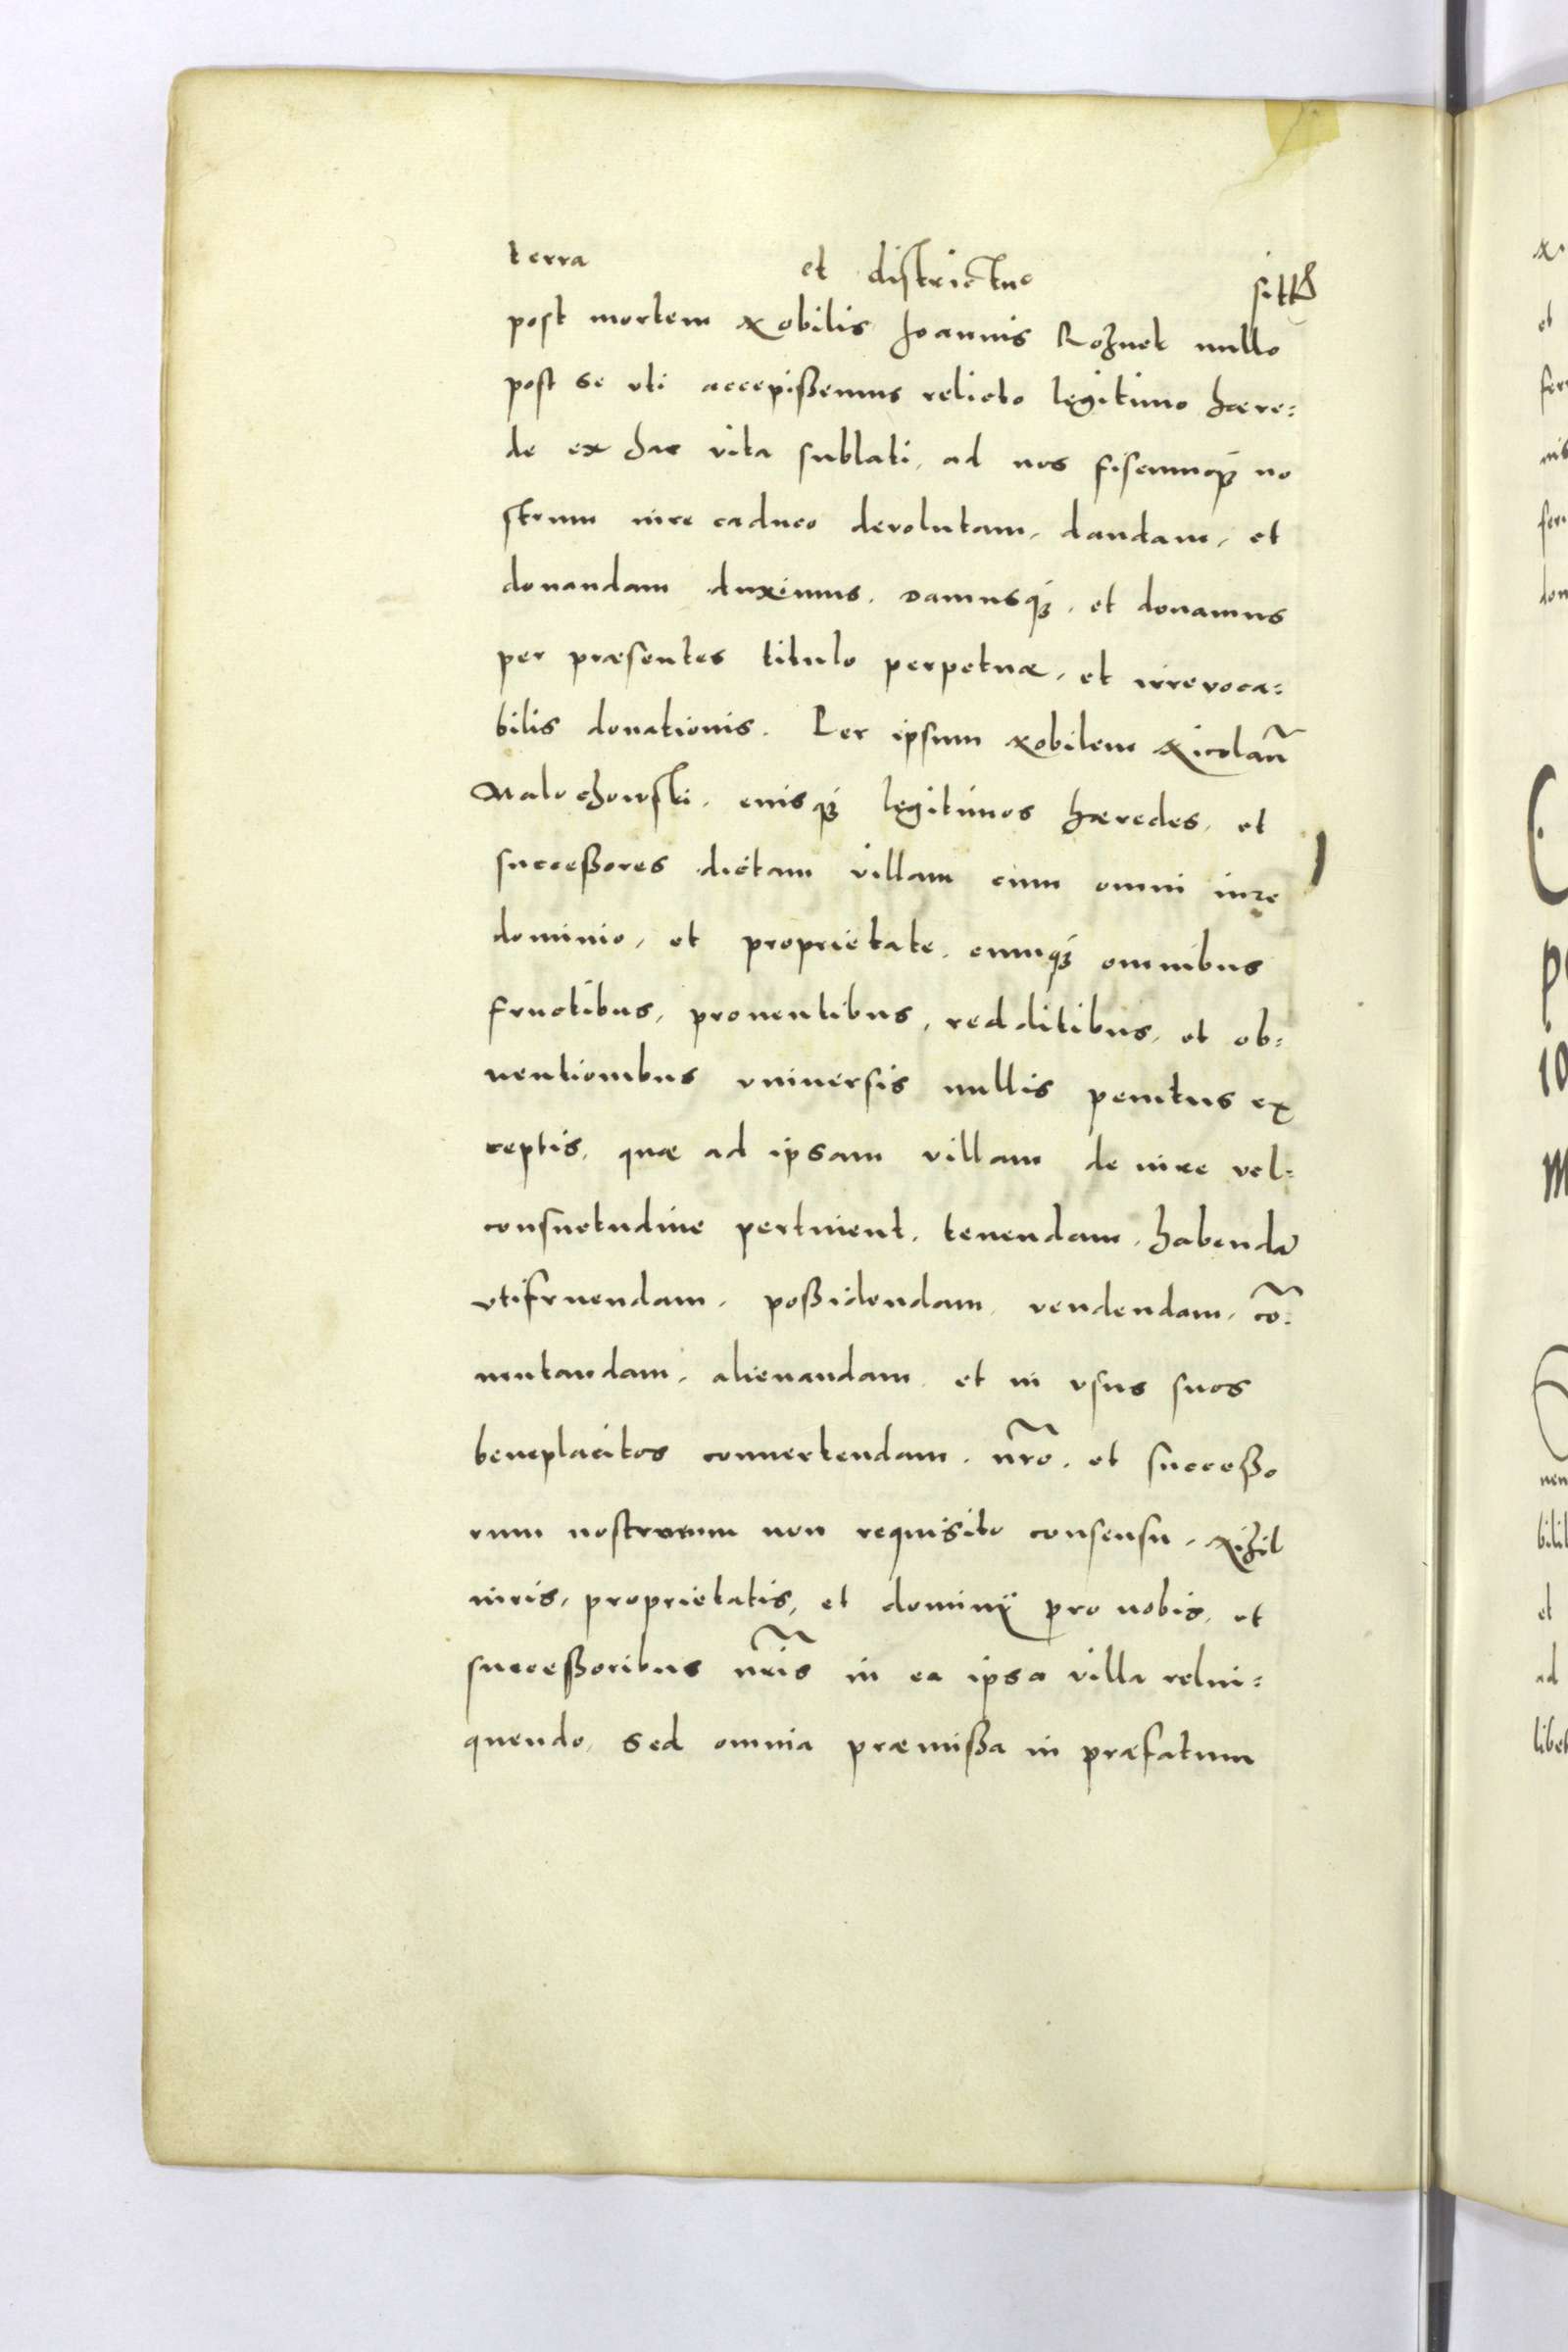 terra et districtuc sitt
post mortem Nobilis Joannis Rożnek nullo
post se vti accepißemus relicto legitimo hære:
de ex hac vita sublati, ad nos fiscumq́ no
strum iure caduco devolutam, dandam, et
donandam duximus. Damusq́, et donamus
per præsentes titulo perpetuæ, et irrevoca:
bilis donationis. Per ipsum Nobilem Nicolaũ
Malochowski, eiusq́ legitimos hæredes, et
succeßores dictam villam cum omni iure
dominio, et proprietate, cumq́ omnibus
fructibus, prouentibus, redditibus, et ob:
uentionibus vniuersis nullis penitus ex
ceptis, quæ ad ipsam villam de iure vel:
consuetudine pertinent, tenendam, habendã
vtifruendam, poßidendam, vendendam, cõ:
mutandam, alienandam, et in vsus suos
beneplacitos conuertendam, nr̃o, et succeßo
rum nostrorum non requisito consensu, Nihil
iuris, proprietatis, et dominij pro nobis, et
succeßoribus nr̃is in ea ipsa villa relin:
quendo, sed omnia præmißa in præfatum